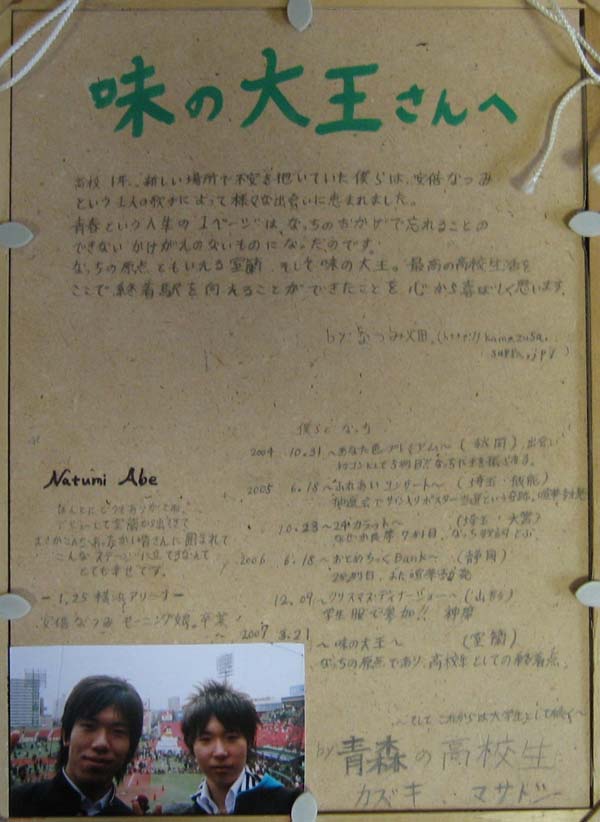 味の大王さんへ
高校1年、新しい場所で不安を抱いていた僕らは、安倍なつみ
という1人の歌手によって様々な出会いに恵まれました。
青春という人生の1ページは、なっちのおかげで忘れることの
できない かけがえのないものになったのです。
なっちの原点ともいえる室蘭、そして味の大王。最高の高校生活を
ここで、終着駅を向えることができたことを 心から喜ばしく思います。
by なつみ畑。
僕らとなっち
2004 10.31 ~あなた色プレミアム~ (秋田) 出会い
2005 6.18 ~ふれあいコンサート~ (埼玉・
抽選会でサイン入りポスター当選という奇跡。
10.23 ~24カラット~ (埼玉・大宮)
2006 6.18 ~おとめちっくBank~ (静岡)
12.09 ~クリスマス・ディナーショー~ (山形)
学生服で参加!!
~ 2007 3.21 ~味の大王~ (室蘭)
なっちの原点であり、高校生としての終着点。
Natumi Abe
ほんとにどうもありがとね。
デビューして室蘭から出てきて
こんなステージに立てるなんて
とても幸せです。
- 1.25 横浜アリーナ -
安倍なつみ モーニング娘。卒業
~そして これからは大学生として続く~
by 青森の高校生
カズキ マサトシ